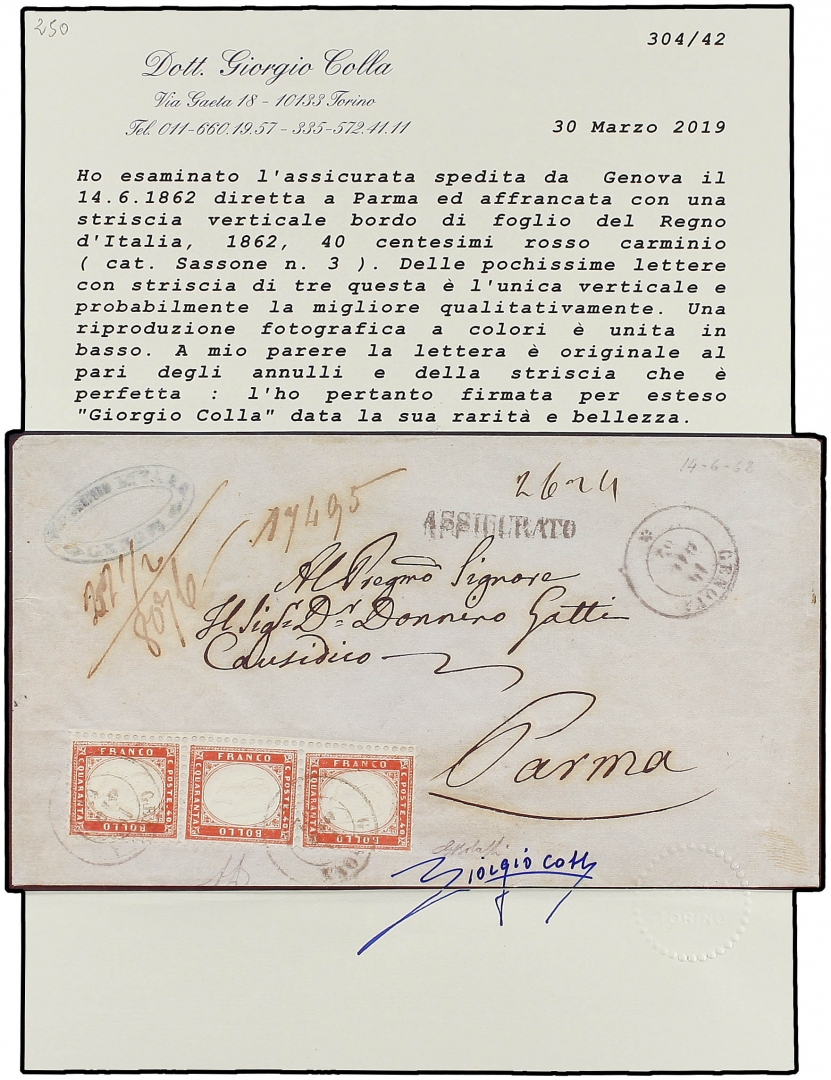 250
304/42
Dott. Giorgio Colla
Via Gaeta 18 - 10133 Torino
Tel. 011-660.19.57 - 335-572.41.11
30 Marzo 2019
Ho esaminato l'assicurata spedita da Genova il
14.6.1862 diretta a Parma ed affrancata con una
striscia verticale bordo di foglio del Regno
d'Italia, 1862, 40 centesimi rosso carminio
( cat. Sassone n. 3 ). Delle pochissime lettere
con striscia di tre questa è l'unica verticale e
probabilmente la migliore qualitativamente. Una
riproduzione fotografica a colori è unita in
basso. A mio parere la lettera è originale al
pari degli annulli e della striscia che è
perfetta : l'ho pertanto firmata per esteso
"Giorgio Colla" data la sua rarità e bellezza.
14-6-62
2624
17495
ASSICURATO
GENOVA
Al Pregmo Signore
Il Sigr Dr Donnino Gatti
Causidico
Parma
FRANCO C.POSTE.40 BOLLO C.QUARANTA
FRANCO C.POSTE.40 BOLLO C.QUARANTA
FRANCO C.POSTE.40 BOLLO C.QUARANTA
Giorgio Colla
TORINO